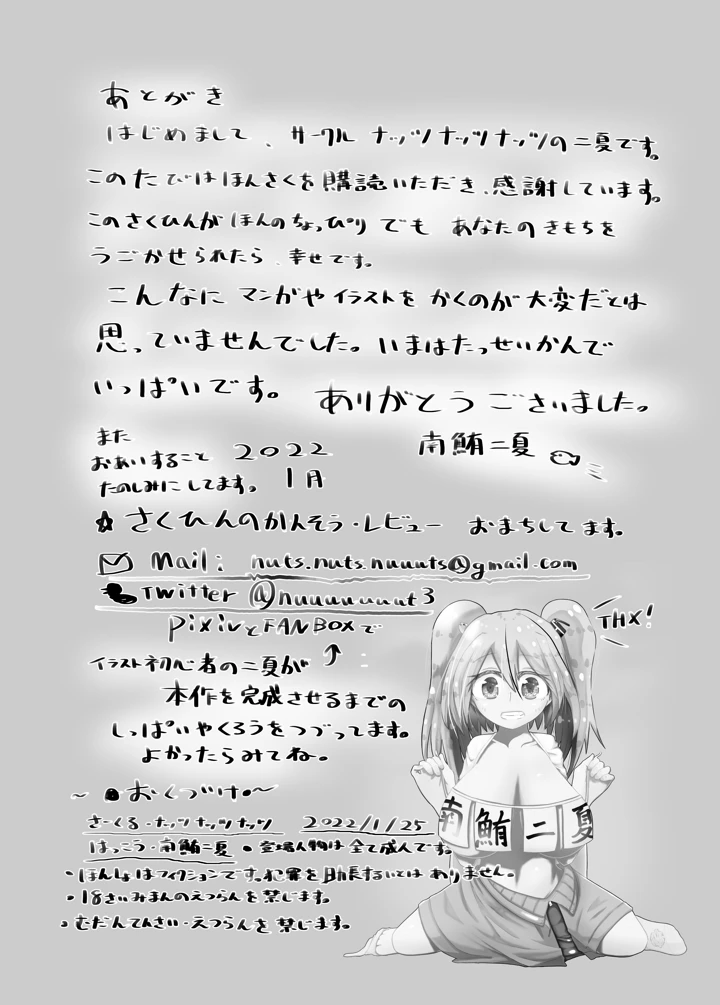 あとがき
はじめまして、サークル ナッツナッツナッツの二夏です。
このたびは ほんさくを購読いただき、感謝しています。
このさくひんが ほんのちょっぴり でも あなたのきもちを
うごかせられたら、幸せです。
こんなに マンガやイラストを かくのが 大変だとは
思っていませんでした。いまはたっせいかんで
いっぱいです。 ありがとうございました。
また
おあいすること
たのしみにしてます。
2022
1月
南鮪二夏
☆さくひんのかんそう・レビュー おまちしてます。
Mail: nuts.nuts.nuuuts@gmail.com
Twitter @nuuuuuuut3
pixivとFANBOXで
イラスト初心者の二夏が
本作を完成させるまでの
しっぱいやくろうをつづってます。
よかったらみてね。
THX!
南鮪二夏
〜●おくづけ〜
さーくる・ナッツナッツナッツ 2022/1/25
はっこう・南鮪二夏 ●登場人物は全て成人です。
・ほんしょはフィクションです。犯罪を助長するいとは ありません。
・18さいみまんのえつらんを禁じます。
・むだんてんさい・えつらんを禁じます。